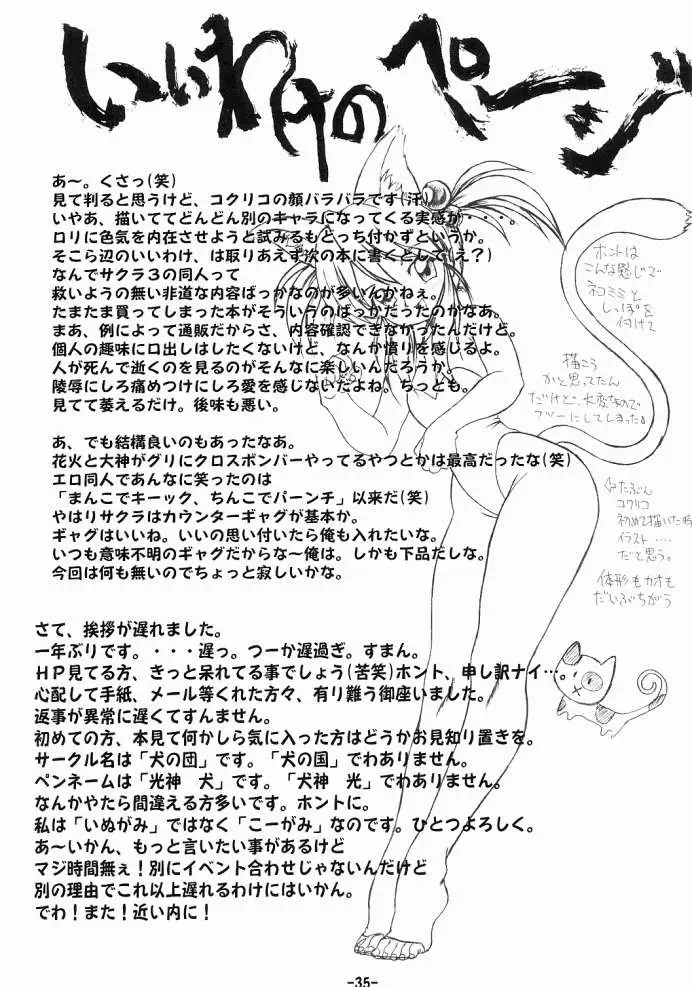 いいわけのページ
あ～。くさっ(笑)
見て判ると思うけど、コクリコの顔バラバラです(汗)
いやあ、描いててどんどん別のキャラになってくる実感が・・・。
ロリに色気を内在させようと試みるもとっち付かずというか。
そこら辺のいいわけ、は取りあえず次の本に書くとして(え？)
なんでサクラ３の同人って
救いようの無い非道な内容ばっかなのが多いんかねぇ。
たまたま買ってしまった本がそういうのばっかだったのかなあ。
まあ、例によって通販だからさ、内容確認できなかったんだけど。
個人の趣味に口出しはしたくないけど、なんか憤りを感じるよ。
人が死んで逝くのを見るのがそんなに楽しいんだろうか。
陵辱にしろ痛めつけにしろ愛を感じないだよね。ちっとも。
見てて萎えるだけ。後味も悪い。
あ、でも結構良いのもあったなあ。
花火と大神がグリにクロスボンバーやってるやつとかは最高だったな(笑)
エロ同人であんなに笑ったのは
「まんこでキーック、ちんこでパーンチ」以来だ(笑)
やはりサクラはカウンターギャグが基本か。
ギャグはいいね。いいの思い付いたら俺も入れたいな。
いつも意味不明のギャグだからな～俺は。しかも下品だしな。
今回は何も無いのでちょっと寂しいかな。
さて、挨拶が遅れました。
一年ぶりです。・・・遅っ。つーか遅過ぎ。すまん。
ＨＰ見てる方、きっと呆れてる事でしょう(苦笑)ホント、申し訳ナイ…
心配して手紙、メール等くれた方々、有り難う御座いました。
返事が異常に遅くてすんません。
初めての方、本見て何かしら気に入った方はどうかお見知り置きを。
サークル名は「犬の団」です。「犬の国」でわありません。
ペンネームは「光神　犬」です。「犬神　光」でわありません。
なんかやたら間違える方多いです。ホントに。
私は「いぬがみ」ではなく「こーがみ」なのです。ひとつよろしく。
あ～いかん、もっと言いたい事があるけど
マジ時間無ぇ！別にイベント合わせじゃないんだけど
別の理由でこれ以上遅れるわけにはいかん。
でわ！また！近い内に！
ホントは
こんな感じで
ネコミミと
しっぽを
付けて
描こう
かと思ってたん
だけど、大変なので
フツーにしてしまった。
⇦たぶん
コクリコ
初めて描いた時
イラスト….
だと思う。
体形もカオも
だいぶちがう
-35-